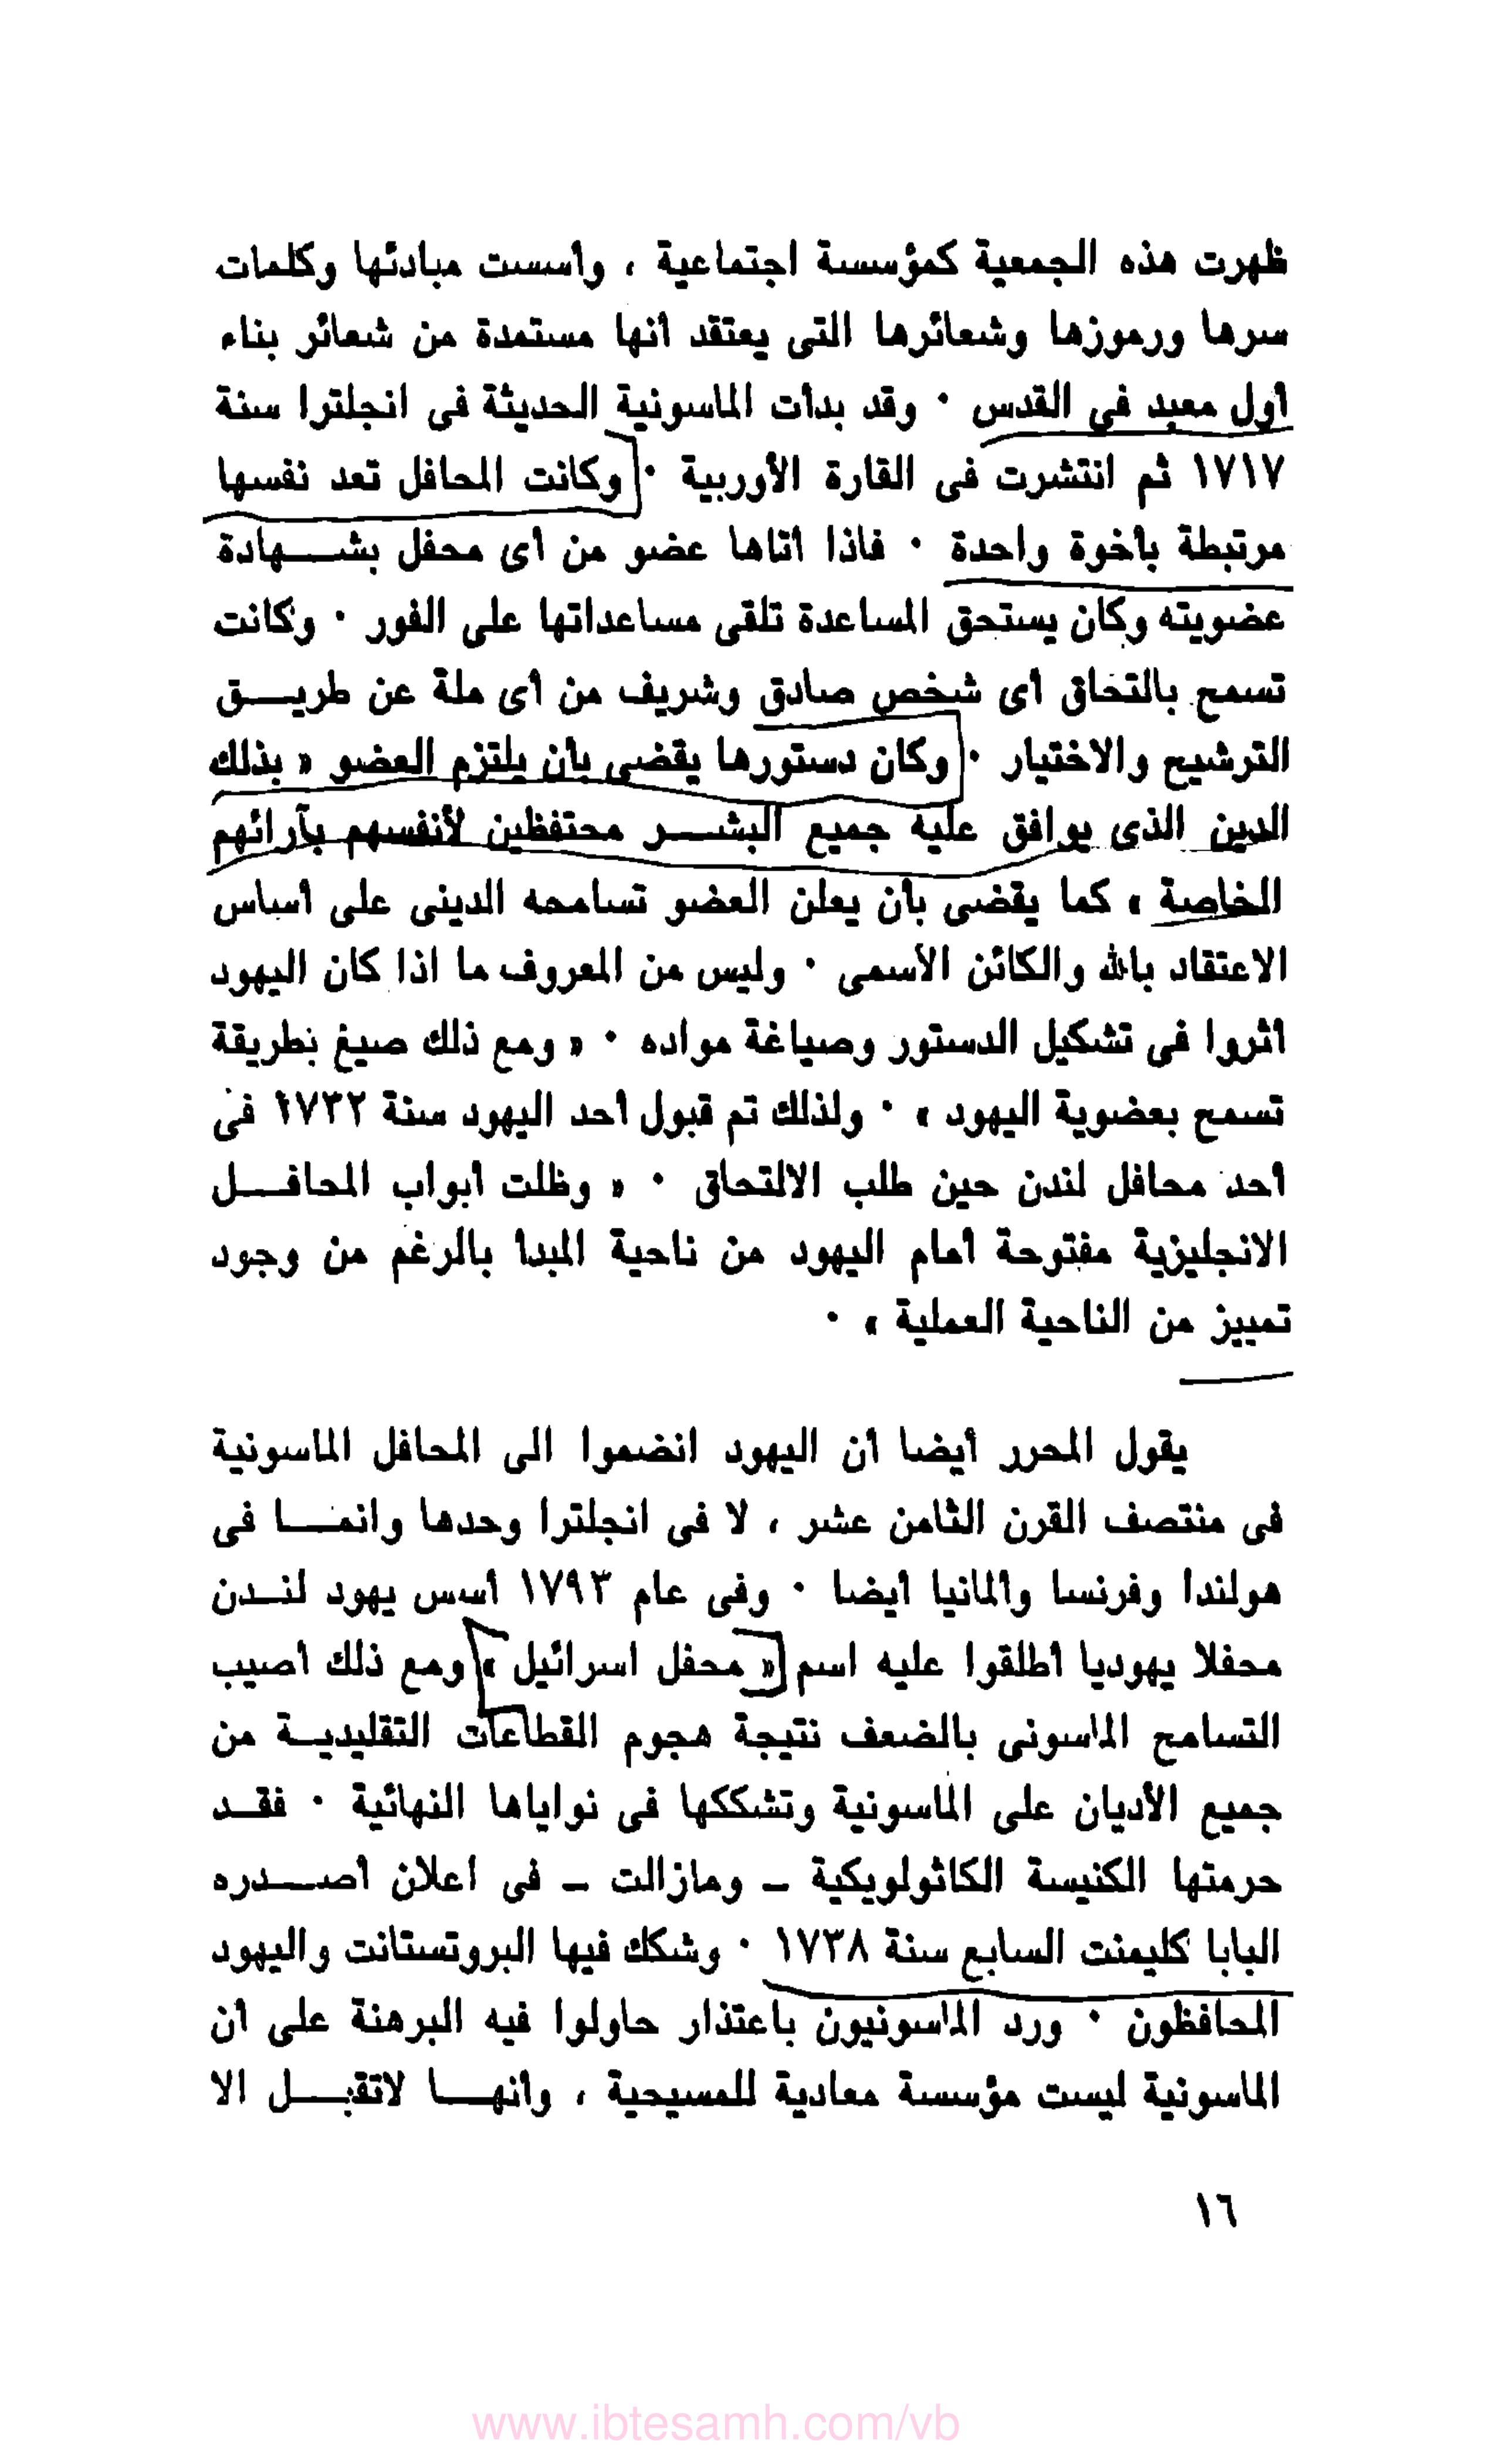 ظهرت هذه الجمعية كمؤسسة اجتماعية ، وأسست مبادئها وكلمات
سرها ورموزها وشعائرها التى يعتقد أنها مستمدة من شعائر بناء
أول معبد في القدس ٠ وقد بدأت الماسونية الحديثة فى انجلترا سنة
١٧١٧ ثم انتشرت فى القارة الأوربية ٠ وكانت المحافل تعد نفسها
مرتبطة بأخوة واحدة ٠ فاذا أتاها عضو من أى محفل بشــهادة
عضويته وكان يستحق المساعدة تلقى مساعداتها على الفور ٠ وكانت
تسمح بالتحاق أى شخص صادق وشريف من أى ملة عن طريــق
الترشيح والاختيار ٠ وكان دستورها يقضى بأن يلتزم العضو « بذلك
الدين الذى يوافق عليه جميع البشــر محتفظين لأنفسهم بآرائهم
الخاصة » كما يقضى بأن يعلن العضو تسامحه الدينى على أساس
الاعتقاد بالله والكائن الأسمى ٠ وليس من المعروف ما اذا كان اليهود
أثروا فى تشكيل الدستور وصياغة مواده ٠ « ومع ذلك صيغ بطريقة
تسمح بعضوية اليهود » ٠ ولذلك تم قبول أحد اليهود سنة ١٧٣٢ فى
أحد محافل لندن حين طلب الالتحاق ٠ « وظلت أبواب المحافــل
الانجليزية مفتوحة أمام اليهود من ناحية المبدأ بالرغم من وجود
تمييز من الناحية العملية » ٠
يقول المحرر أيضا أن اليهود انضموا الى المحافل الماسونية
فى منتصف القرن الثامن عشر ، لا فى انجلترا وحدها وانمــا فى
هولندا وفرنسا والمانيا أيضا ٠ وفى عام ١٧٩٣ أسس يهود لنــدن
محفلا يهوديا أطلقوا عليه اسم « محفل اسرائيل » ومع ذلك أصيب
التسامح الماسونى بالضعف نتيجة هجوم القطاعات التقليديــة من
جميع الأديان على الماسونية وتشككها فى نواياها النهائية ٠ فقــد
حرمتها الكنيسة الكاثولويكية ــ ومازالت ــ فى اعلان أصــدره
البابا كليمنت السابع سنة ١٧٣٨ ٠ وشكك فيها البروتستانت واليهود
المحافظون ٠ ورد الماسونيون باعتذار حاولوا فيه البرهنة على أن
الماسونية ليست مؤسسة معادية للمسيحية ، وأنهــا لاتقبــل الا
١٦
www.ibtesamh.com/vb